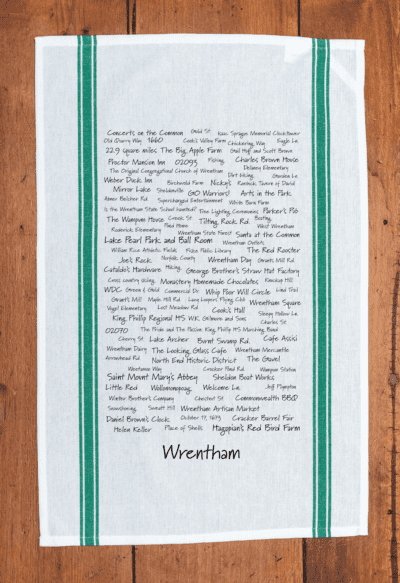 Concerts on the Common Gould St. Isaac Sprague Memorial Clocktower
Old Quarry Way 1660 Cook's Valley Farm Chickering Way Eagle Ln
22.9 square miles The Big Apple Farm Gail Huff and Scott Brown
Proctor Mansion Inn 02093 Fishing Charles Brown House
The Original Congregational Church of Wrentham Delaney Elementary
Weber Duck Inn Dirt biking Gordon Ln
Birchwold Farm Nicky's
Mirror Lake Sheldonville GO Warriors! Arts in the Park
Abner Belcher Rd. Supercharged Entertainment White Barn Farm
Is the Wrentham State School haunted? The Lighting Ceremony Parker's Po
The Wampum House Creek St. Tilting Rock Rd. Boating
Roderick Elementary Pond Home West Wrentham
Wrentham State Forest Santa at the Common
Lake Pearl Park and Ball Room Wrentham Outlets
William Rice Athletic Fields Fiske Public Library The Red Rooster
Joe's Rock Norfolk County Wrentham Day Grant's Mill Rd.
Cataldo's Hardware Hiking George Brother's Straw Hat Factory
Cross country skiing Monastery Homemade Chocolates
WDC Green & Gold Commercial Dr. Whip Poor Will Circle Lind Trail
Grant's Mill Maple Hill Rd. Flying Club Wrentham Square
Vogel Elementary Lost Meadow Rd. Cook's Hall Sleepy Hollow Ln
King Phillip Regional HS W.K. Gilmore and Sons Charles St.
02070 The Pride and The Passion King Phillip HS Marching Band
Cherry St. Lake Archer Burnt Swamp Rd. Cafe Assisi
Wrentham Dairy The Looking Glass Cafe Wrentham Mercantile
Arrowhead Rd. North End Historic District The Gavel
Weetamoe Way Cracker Pond Rd. Wampum Station
Saint Mount Mary's Abbey Sheldon Boat Works
Little Red Wollomonopoag Welcome Ln. Jeff Plympton
Winter Brother's Company Chestnut St. Commonwealth BBQ
Snowshoeing Sweatt Hill Wrentham Artisan Market
Daniel Brown's Clock October 17, 1673 Cracker Barrel Fair
Helen Keller Place of Shells Hagopian's Red Bird Farm
Wrentham